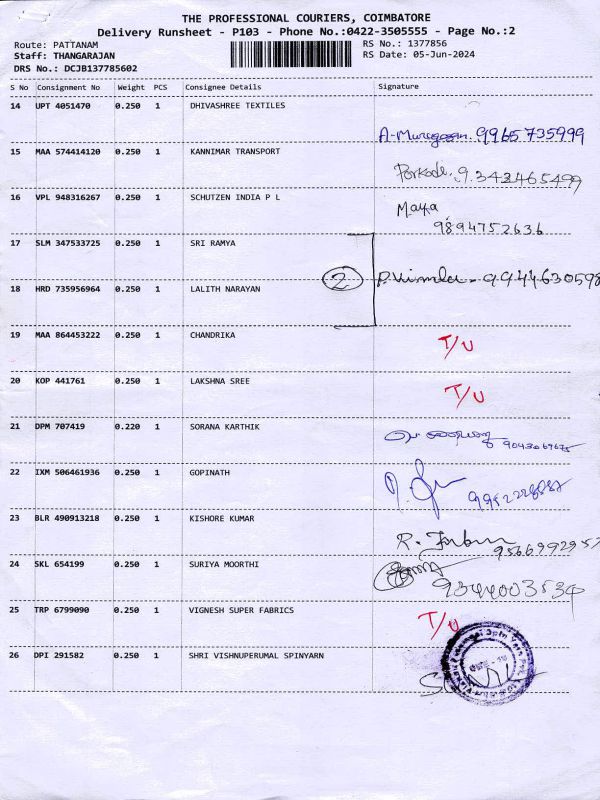 THE PROFESSIONAL COURIERS, COIMBATORE
Delivery Runsheet - P103 - Phone No.:0422-3505555 - Page No.:2
Route: PATTANAM RS No.: 1377856
Staff: THANGARAJAN RS Date: 05-Jun-2024
DRS No.: DCJB137785602
S No Consignment No Weight PCS Consignee Details Signature
14 UPT 4051470 0.250 1 DHIVASHREE TEXTILES
A-Murugesan. 9965735999
15 MAA 574414120 0.250 1 KANNIMAR TRANSPORT
Porkodi. 9342465499
16 VPL 948316267 0.250 1 SCHUTZEN INDIA P L
Maya
9894752636
17 SLM 347533725 0.250 1 SRI RAMYA
2 P.Vimla - 9944630598
18 HRD 735956964 0.250 1 LALITH NARAYAN
19 MAA 864453222 0.250 1 CHANDRIKA
T/U
20 KOP 441761 0.250 1 LAKSHNA SREE
T/U
21 DPM 707419 0.220 1 SORANA KARTHIK
9043069675
22 IXM 506461936 0.250 1 GOPINATH
23 BLR 490913218 0.250 1 KISHORE KUMAR
9566992957
24 SKL 654199 0.250 1 SURIYA MOORTHI
9344003534
25 TRP 6799090 0.250 1 VIGNESH SUPER FABRICS
T/U
26 DPI 291582 0.250 1 SHRI VISHNUPERUMAL SPINYARN